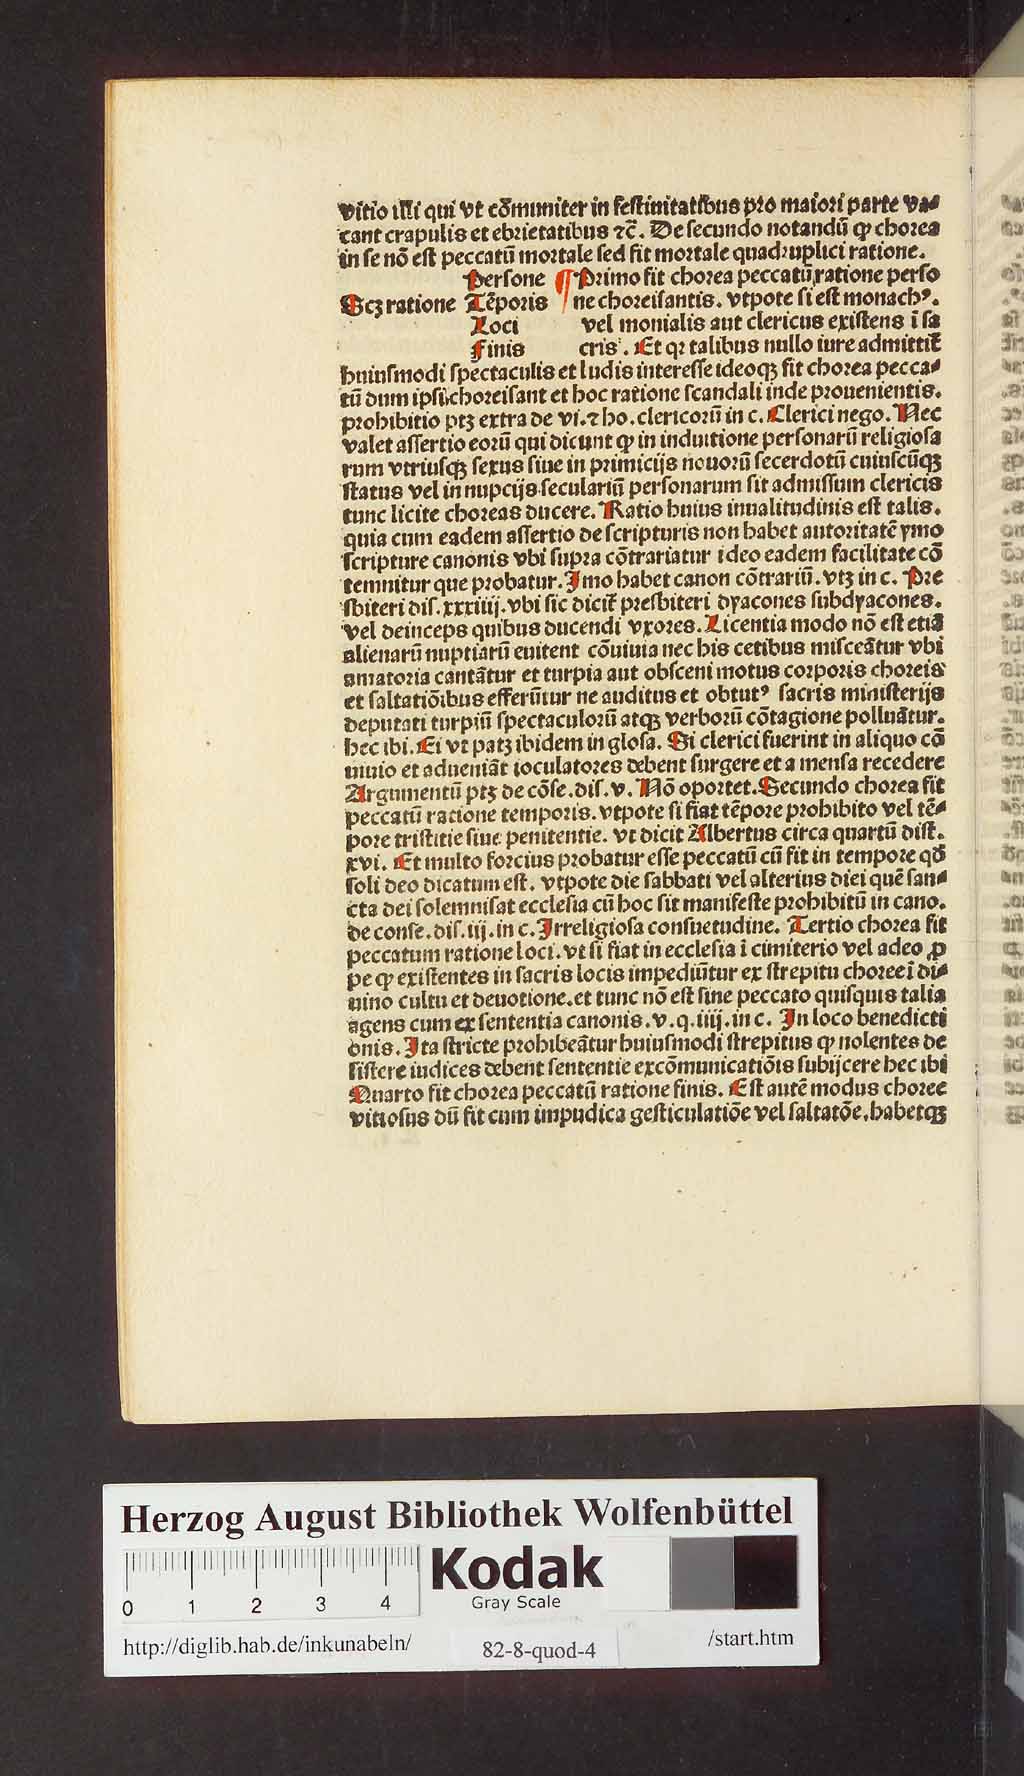 vitio illi qui vt cõmuniter in festiuitatibus pro maiori parte va⸗
cant crapulis et ebrietatibus ⁊c̃. De secundo notandũ ꝙ chorea
in se nõ est peccatũ mortale sed fit mortale quadruplici ratione.
Persone ¶ Primo fit chorea peccatũ ratione perso
Scꝫ ratione Tẽporis ne choreisantis. vtpote si est monachꝰ.
Loci vel monialis aut clericus existens ĩ sa
Finis cris. Et qꝛ talibus nullo iure admittit̃
huiusmodi spectaculis et ludis interesse ideoqꝫ fit chorea pecca⸗
tũ dum ipsi choreisant et hoc ratione scandali inde prouenientis.
prohibitio ptꝫ extra de vi. ⁊ ho. clericorũ in c. Clerici nego. Nec
valet assertio eorũ qui dicunt ꝙ in induitione personarũ religiosa
rum vtriusqꝫ sexus siue in primicijs nouorũ secerdotũ cuiuscũqꝫ
status vel in nupcijs seculariũ personarum sit admissum clericis
tunc licite choreas ducere. Ratio huius inualitudinis est talis.
quia cum eadem assertio de scripturis non habet autoritatẽ ymo
scripture canonis vbi supra cõtrariatur ideo eadem facilitate cõ
temnitur que probatur. Imo habet canon cõtrariũ. vtꝫ in c. Pre
sbiteri dis. xxxiiij. vbi sic dicit̃ presbiteri dyacones subdyacones.
vel deinceps quibus ducendi vxores. Licentia modo nõ est etiã
alienarũ nuptiarũ euitent cõuiuia nec his cetibus misceãtur vbi
amatoria cantãtur et turpia aut obsceni motus corporis choreis
et saltatiõibus efferũtur ne auditus et obtutꝰ sacris ministerijs
deputati turpiũ spectaculorũ atqꝫ verborũ cõtagione polluãtur.
hec ibi. Ei vt patꝫ ibidem in glosa. Si clerici fuerint in aliquo cõ
uiuio et adueniãt ioculatores debent surgere et a mensa recedere
Argumentũ ptꝫ de cõse. dis. v. Nõ oportet. Secundo chorea fit
peccatũ racione temporis. vtpote si fiat tẽpore prohibito vel tẽ⸗
pore tristitie siue penitentie. vt dicit Albertus circa quartũ dist.
xvi. Et multo forcius probatur esse peccatũ cũ fit in tempore qõ
soli deo dicatum est. vtpote die sabbati vel alterius diei quẽ san⸗
cta dei solemnisat ecclesia cũ hoc sit manifeste prohibitũ in cano.
de conse. dis. iij. in c. Irreligiosa consuetudine. Tertio chorea fit
peccatum ratione loci. vt si fiat in ecclesia ĩ cimiterio vel adeo ꝓ
pe ꝙ existentes in sacris locis impediũtur ex strepitu choree ĩ di⸗
uino cultu et deuotione. et tunc nõ est sine peccato quisquis talia
agens cum ex sententia canonis. v. q. iiij. in c. In loco benedicti
onis. Ita stricte prohibeãtur huiusmodi strepitus ꝙ nolentes de
sistere iudices debent sententie excõmunicatiõis subijcere hec ibi
Quarto fit chorea peccatũ ratione finis. Est autẽ modus choree
vitiosus dũ fit cum impudica gesticulatiõe vel saltatõe. habetqꝫ
Herzog August Bibliothek Wolfenbüttel
Kodak
Gray Scale
0 1 2 3 4
http://diglib.hab.de/inkunabeln/ 82-8-quod-4 /start.htm